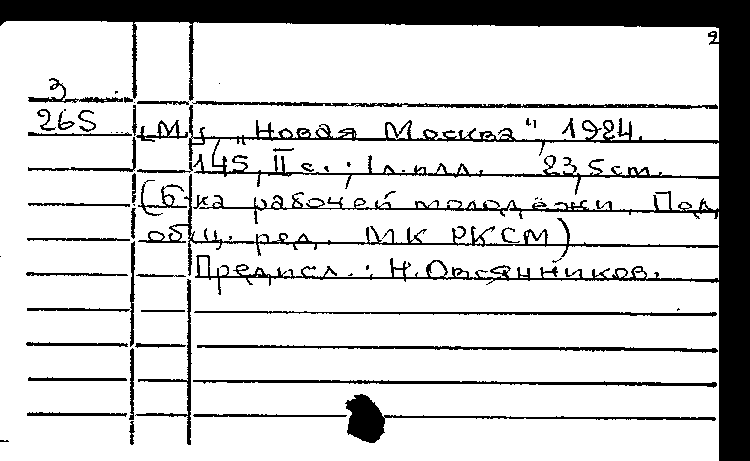 2
З
265
[М.], „Новая Москва", 1924.
145, II с.; 1 л. илл. 23,5 cm.
(Б-ка рабочей молодёжи. Под
общ. ред. МК РКСМ)
Предисл.: Н. Овсянников.